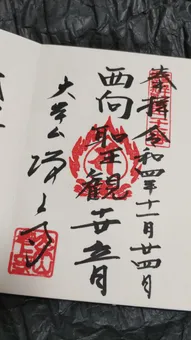 奉拝 令和四年十一月廿四日
西向聖観世音
大本山 増上寺